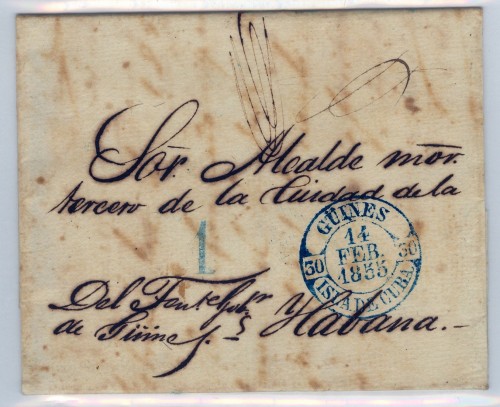 Sõr. Alcalde mõr.
tercero de la Ciudad de la
Habana.
1
GÜINES
14
FEB.
1855
30 30
ISLA DE CUBA
Del Tente Gobr.
de Güines